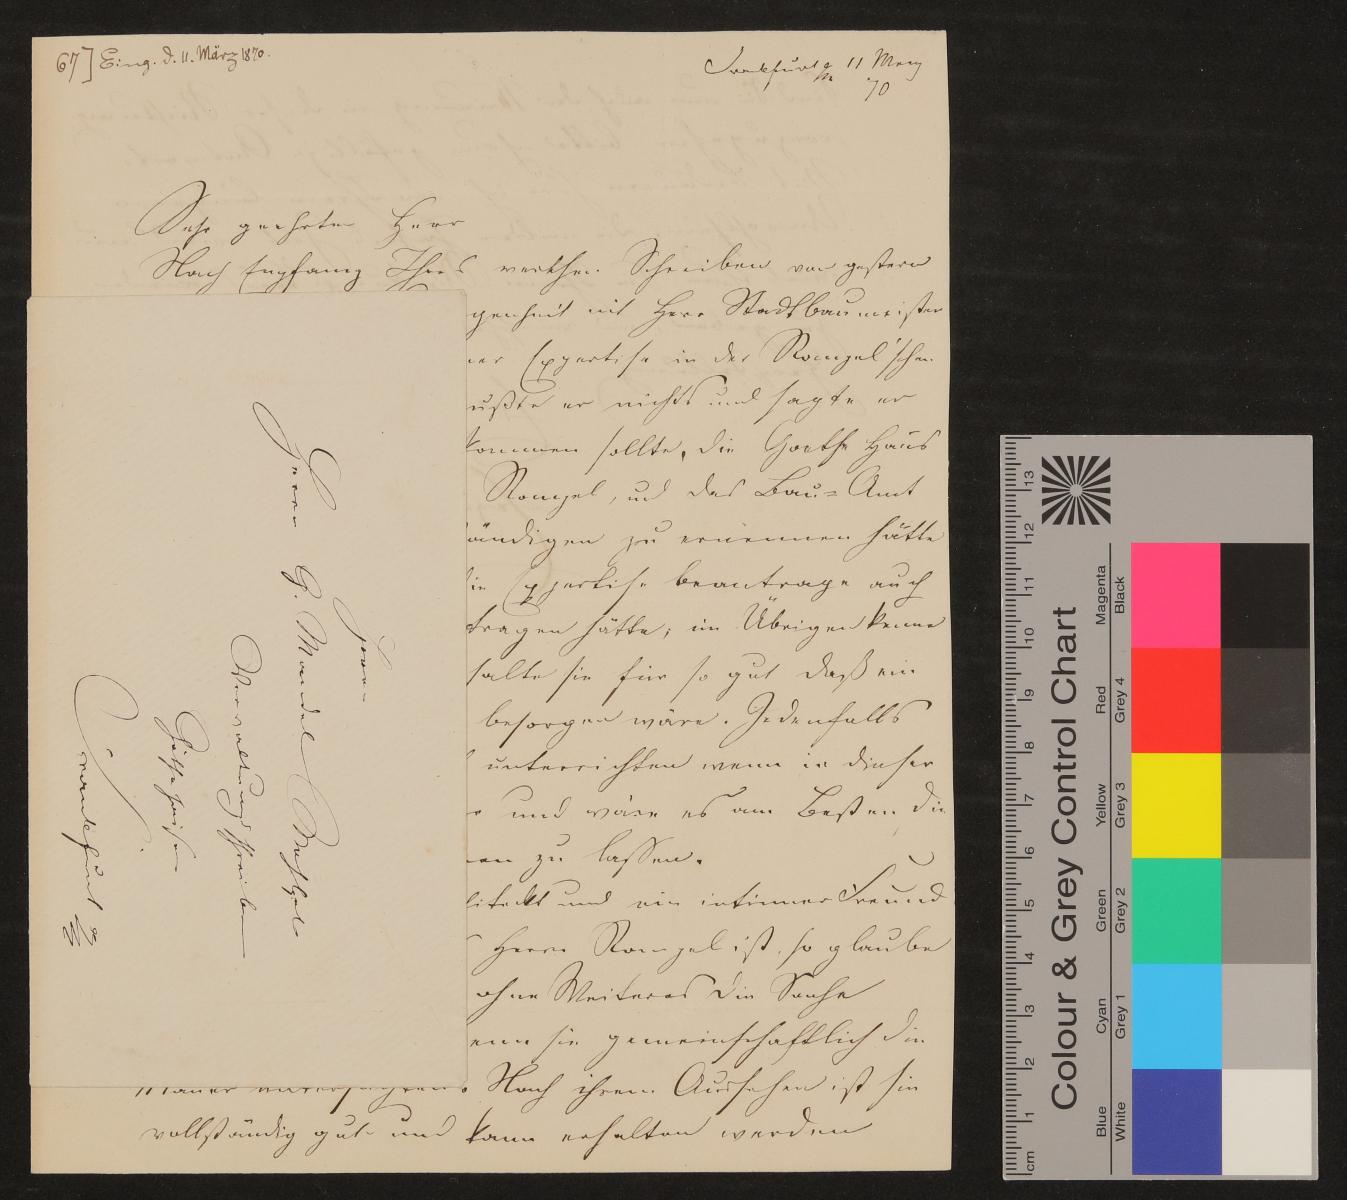 67] Eing. d. 11. März 1870.
Frankfurt a/M 11 Merz
70
Sehr geehrter Herr
Nach Empfang Ihres werthen Schreiben von gestern
genheit mit Herr Stadtbaumeister
ner Expertise in der Rompel'schen
ußte er nichts und sagte er
kommen sollte, die Goethe Haus
Rompel, und das Bau-Amt
ändigen zu ernennen hätte
die Expertise beantrage auch
tragen hätte; im Übrigen kenne
halte sie für so gut daß ein
besorgen wäre. Jedenfalls
unterrichten wenn in dieser
und wäre es am Besten die
en zu lassen.
hitekt und ein intimer Freund
Herrn Rompel ist, so glaube
ohne Weiteres die Sache
enn sie gemeinschaftlich die
Mauer untersuchten. Nach ihrem Aussehen ist sie
vollständig gut und kann erhalten werden
Herrn
Herrn G. Mandel
Verwaltungsschreiber
Göthehause
Frankfurt a/M
Colour & Grey Control Chart
Blue Cyan Green Yellow Red Magenta
White Grey 1 Grey 2 Grey 3 Grey 4 Black
cm 1 2 3 4 5 6 7 8 9 10 11 12 13